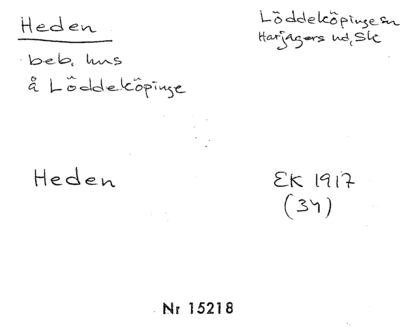 Heden
Löddeköpinge sn
Harjagers hd, Sk
beb, hus
å Löddeköpinge
Heden
EK 1917
(34)
Nr 15218